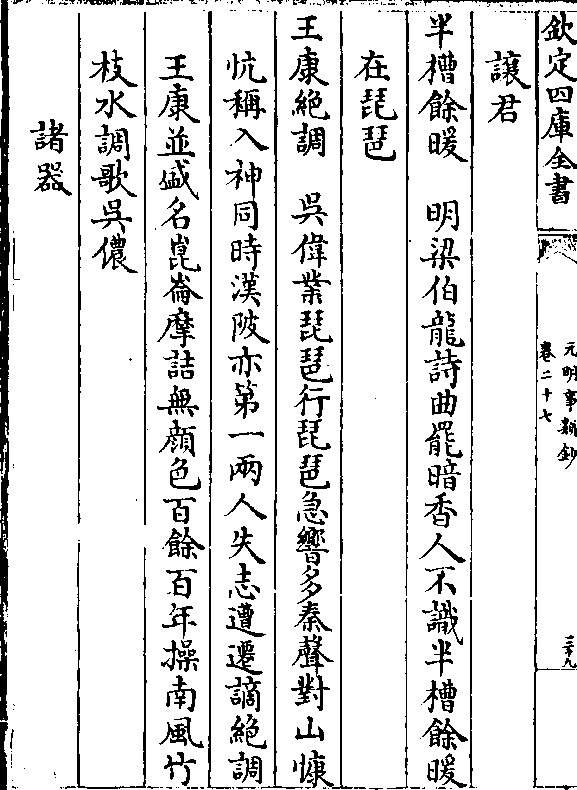 欽定四庫全書
元明事類鈔
卷二十七
三十九
讓君
半槽餘暖　明梁伯龍詩曲罷暗香人不識半槽餘暖
在琵琶
王康絶調　吳偉業琵琶行琵琶急響多秦聲對山慷
忼稱入神同時漢陂亦第一兩人失志遭遷謫絶調
王康並盛名崑崙摩詰無顔色百餘百年操南風竹
枝水調歌吳儂
諸器